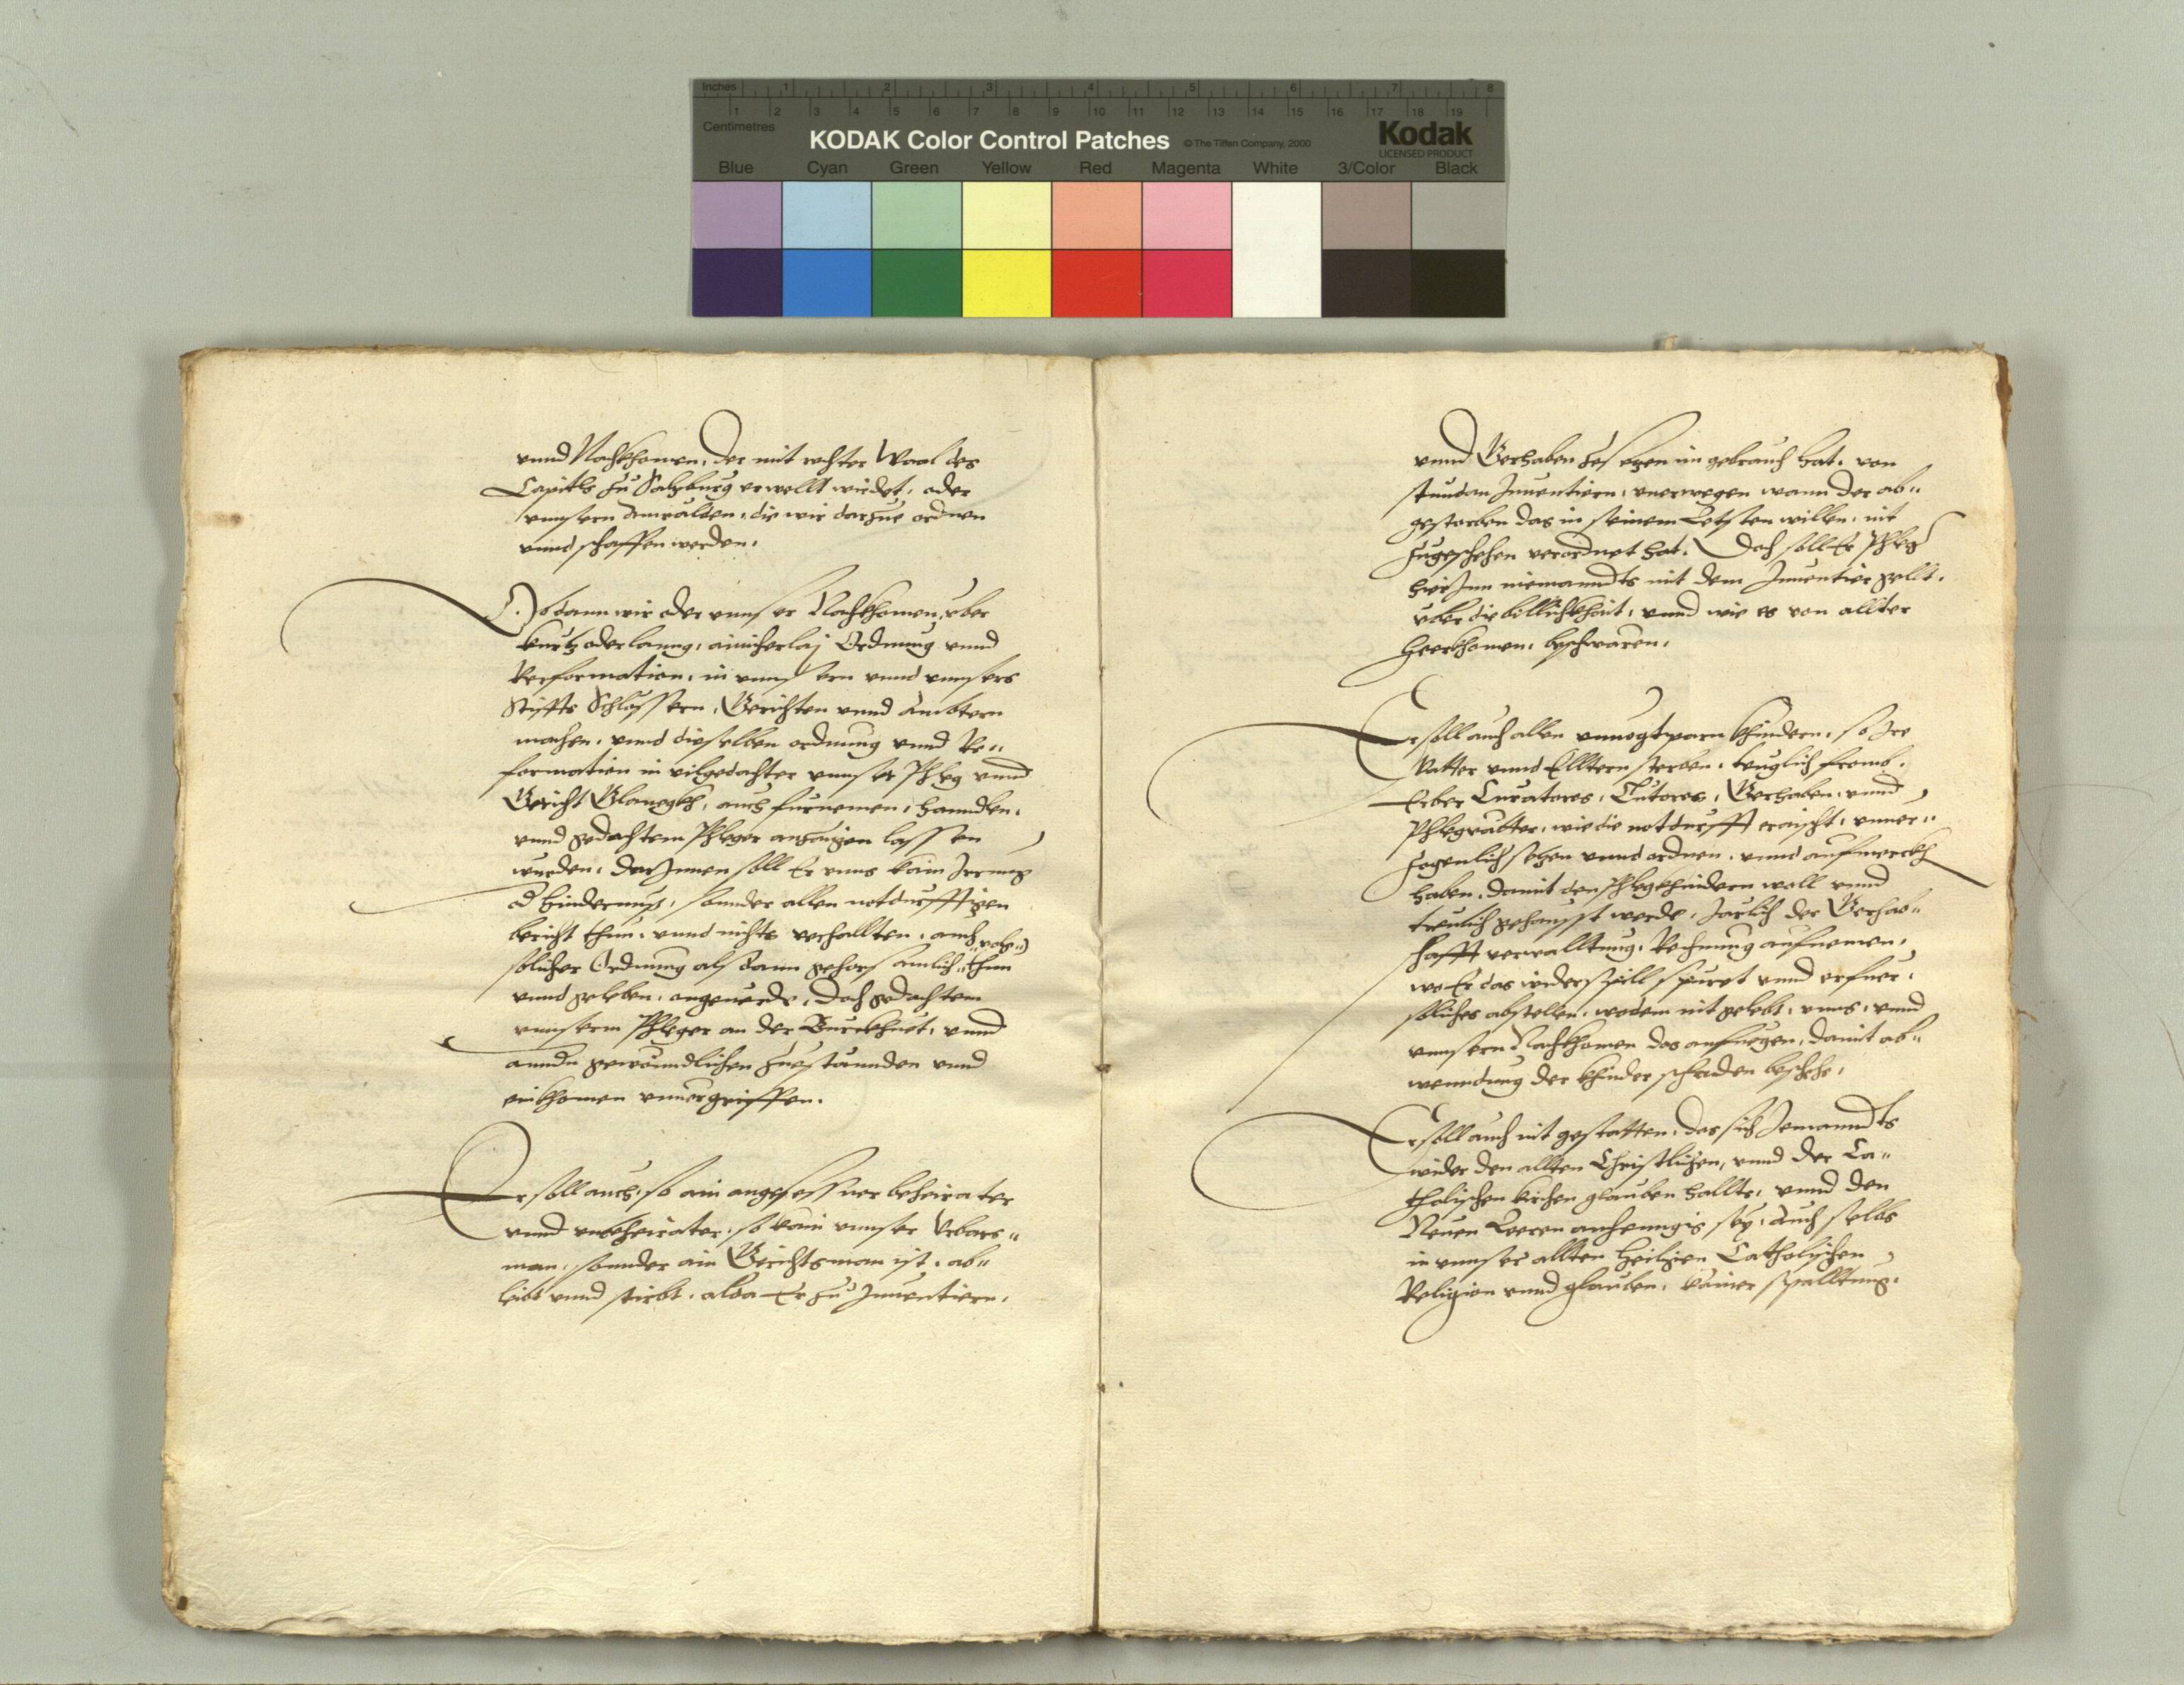 Inches 1 2 3 4 5 6 7 8
1 2 3 4 5 6 7 8 9 10 11 12 13 14 15 16 17 18 19
Centimetres
KODAK Color Control Patches © The Tiffen Company, 2000 Kodak
LICENSED PRODUCT
Blue Cyan Green Yellow Red Magenta White 3/Color Black
vnnd Nachkhomen, der mit rechter Waal des
Capitls zu Salzburg erwellt wirdet, oder
vnnsern Anwälden, die wir darzue ordnen
vnnd schaffen werden.
Ob dann wir oder vnnser Nachkhomen, vber
kurtz oder lanng, ainicherlaj Ordnung vnnd
Reformation, in vnnsern vnnd vnnsers
Stiffts Schlössern, Gerichten vnnd Ämbtern
machen, vnnd dieselben ordnung vnnd Re„
formation in vilgedachter vnnser Phleg vnnd
Gericht Glanegkh, auch furnemen, hanndlen,
vnnd gedachtem Phleger anzaigen lassen
wurden, darInnen soll Er vnns kain Irrung
od hindernuß, sonnder allen notdurfftigen
bericht thun, vnnd nichts verhallten, auch
solicher Ordnung alsdann gehorsamlich „volg„ thun
vnnd geleben, ongeuerde, Doch gedachtem
vnnserm Phleger an der Burckhuet, vnnd
anndn gewöndlichen zuestännden vnnd
einkhomen vnuergriffen.
Er soll auch, so ain angesessner beheirater
vnnd vnbeheirater, so kain vnnser Vrbars„
man, sonnder ain Gerichtsman ist, ab„
leibt vnnd stirbt, alda Er zu Inuentiern,
vnnd Gerhaben zesetzen im gebrauch hat, von
stundan Inuentiern, vnerwegen wann der ab„
gestorben das in seinem Letsten willen, nit
zugeschehen verordnet hat. Doch soll Er Phleger
hierJnn niemanndts mit dem Inuentier gellt,
vber die billichkhait, vnnd wie es von allter
Heerkhomen, beschwären.
Er soll auch allen vnuogtparn khindern, so Jre
Vatter vnnd Elltern sterben, teuglich fromb,
Erber Curatores, Tutores, Gerhaben, vnnd
Phlegvätter, wie die notdurfft eraischt, vnuer„
zogenlich setzen vnnd ordnen, vnnd aufmerckh
haben, damit den Phlegkhindern woll vnnd
treulich gehausst werde, Järlich der Gerhab„
schafft verwalltung, Rechnung aufnemen,
wo Er das widerspill spüret vnnd erfuer,
soliches abstellen, wo dem nit gelebt, vnns, vnnd
vnnsern Nachkhomen das anfuegen, damit ab„
wenndung der khinder schaden beschehe,
Er soll auch nit gestatten, das sich Jemanndts
wider den allten Christlichen, vnnd der Ca„
tholischen kirchen glauben hallte, vnnd den
Neuen Leeren anhenngig sey, Auch selbs
in vnnser allten Heiligen Catholischen
Religion vnnd glauben, kainer spalltung,